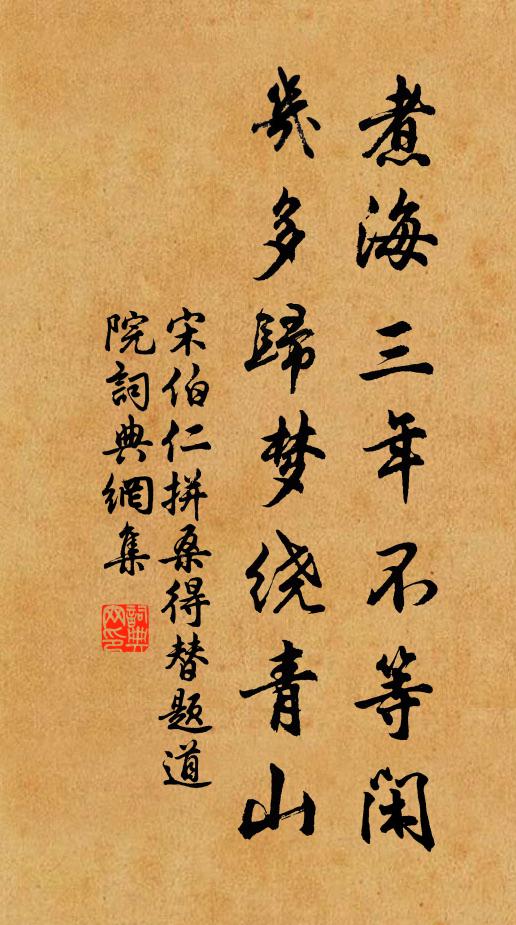 煮海三年不等閑
幾多歸梦绕青山
宋伯仁拼桑得替题道
院詞典網集
詞典网印